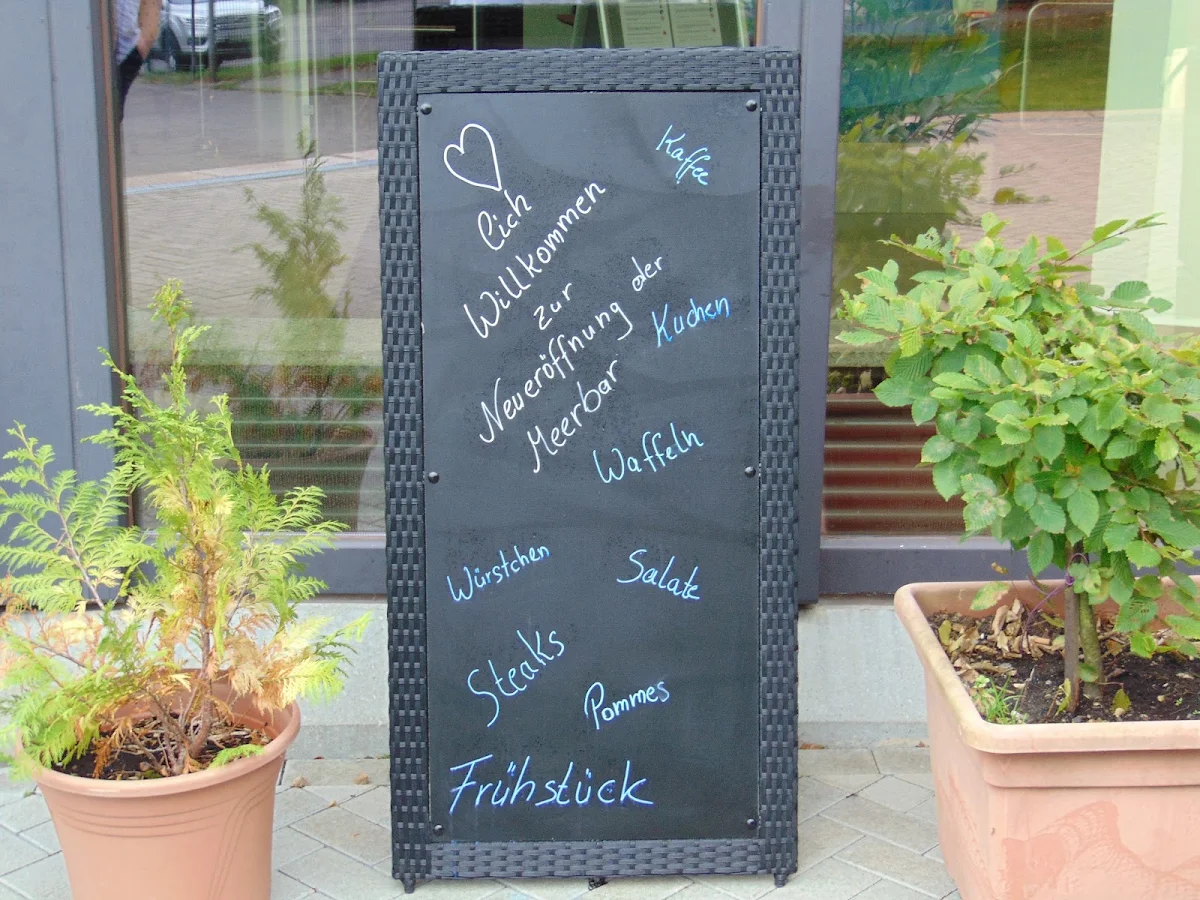 lich
Willkommen
zur
Neueröffnung der
Meerbar
Kaffee
Kuchen
Waffeln
Würstchen
Salate
Steaks
Pommes
Frühstück